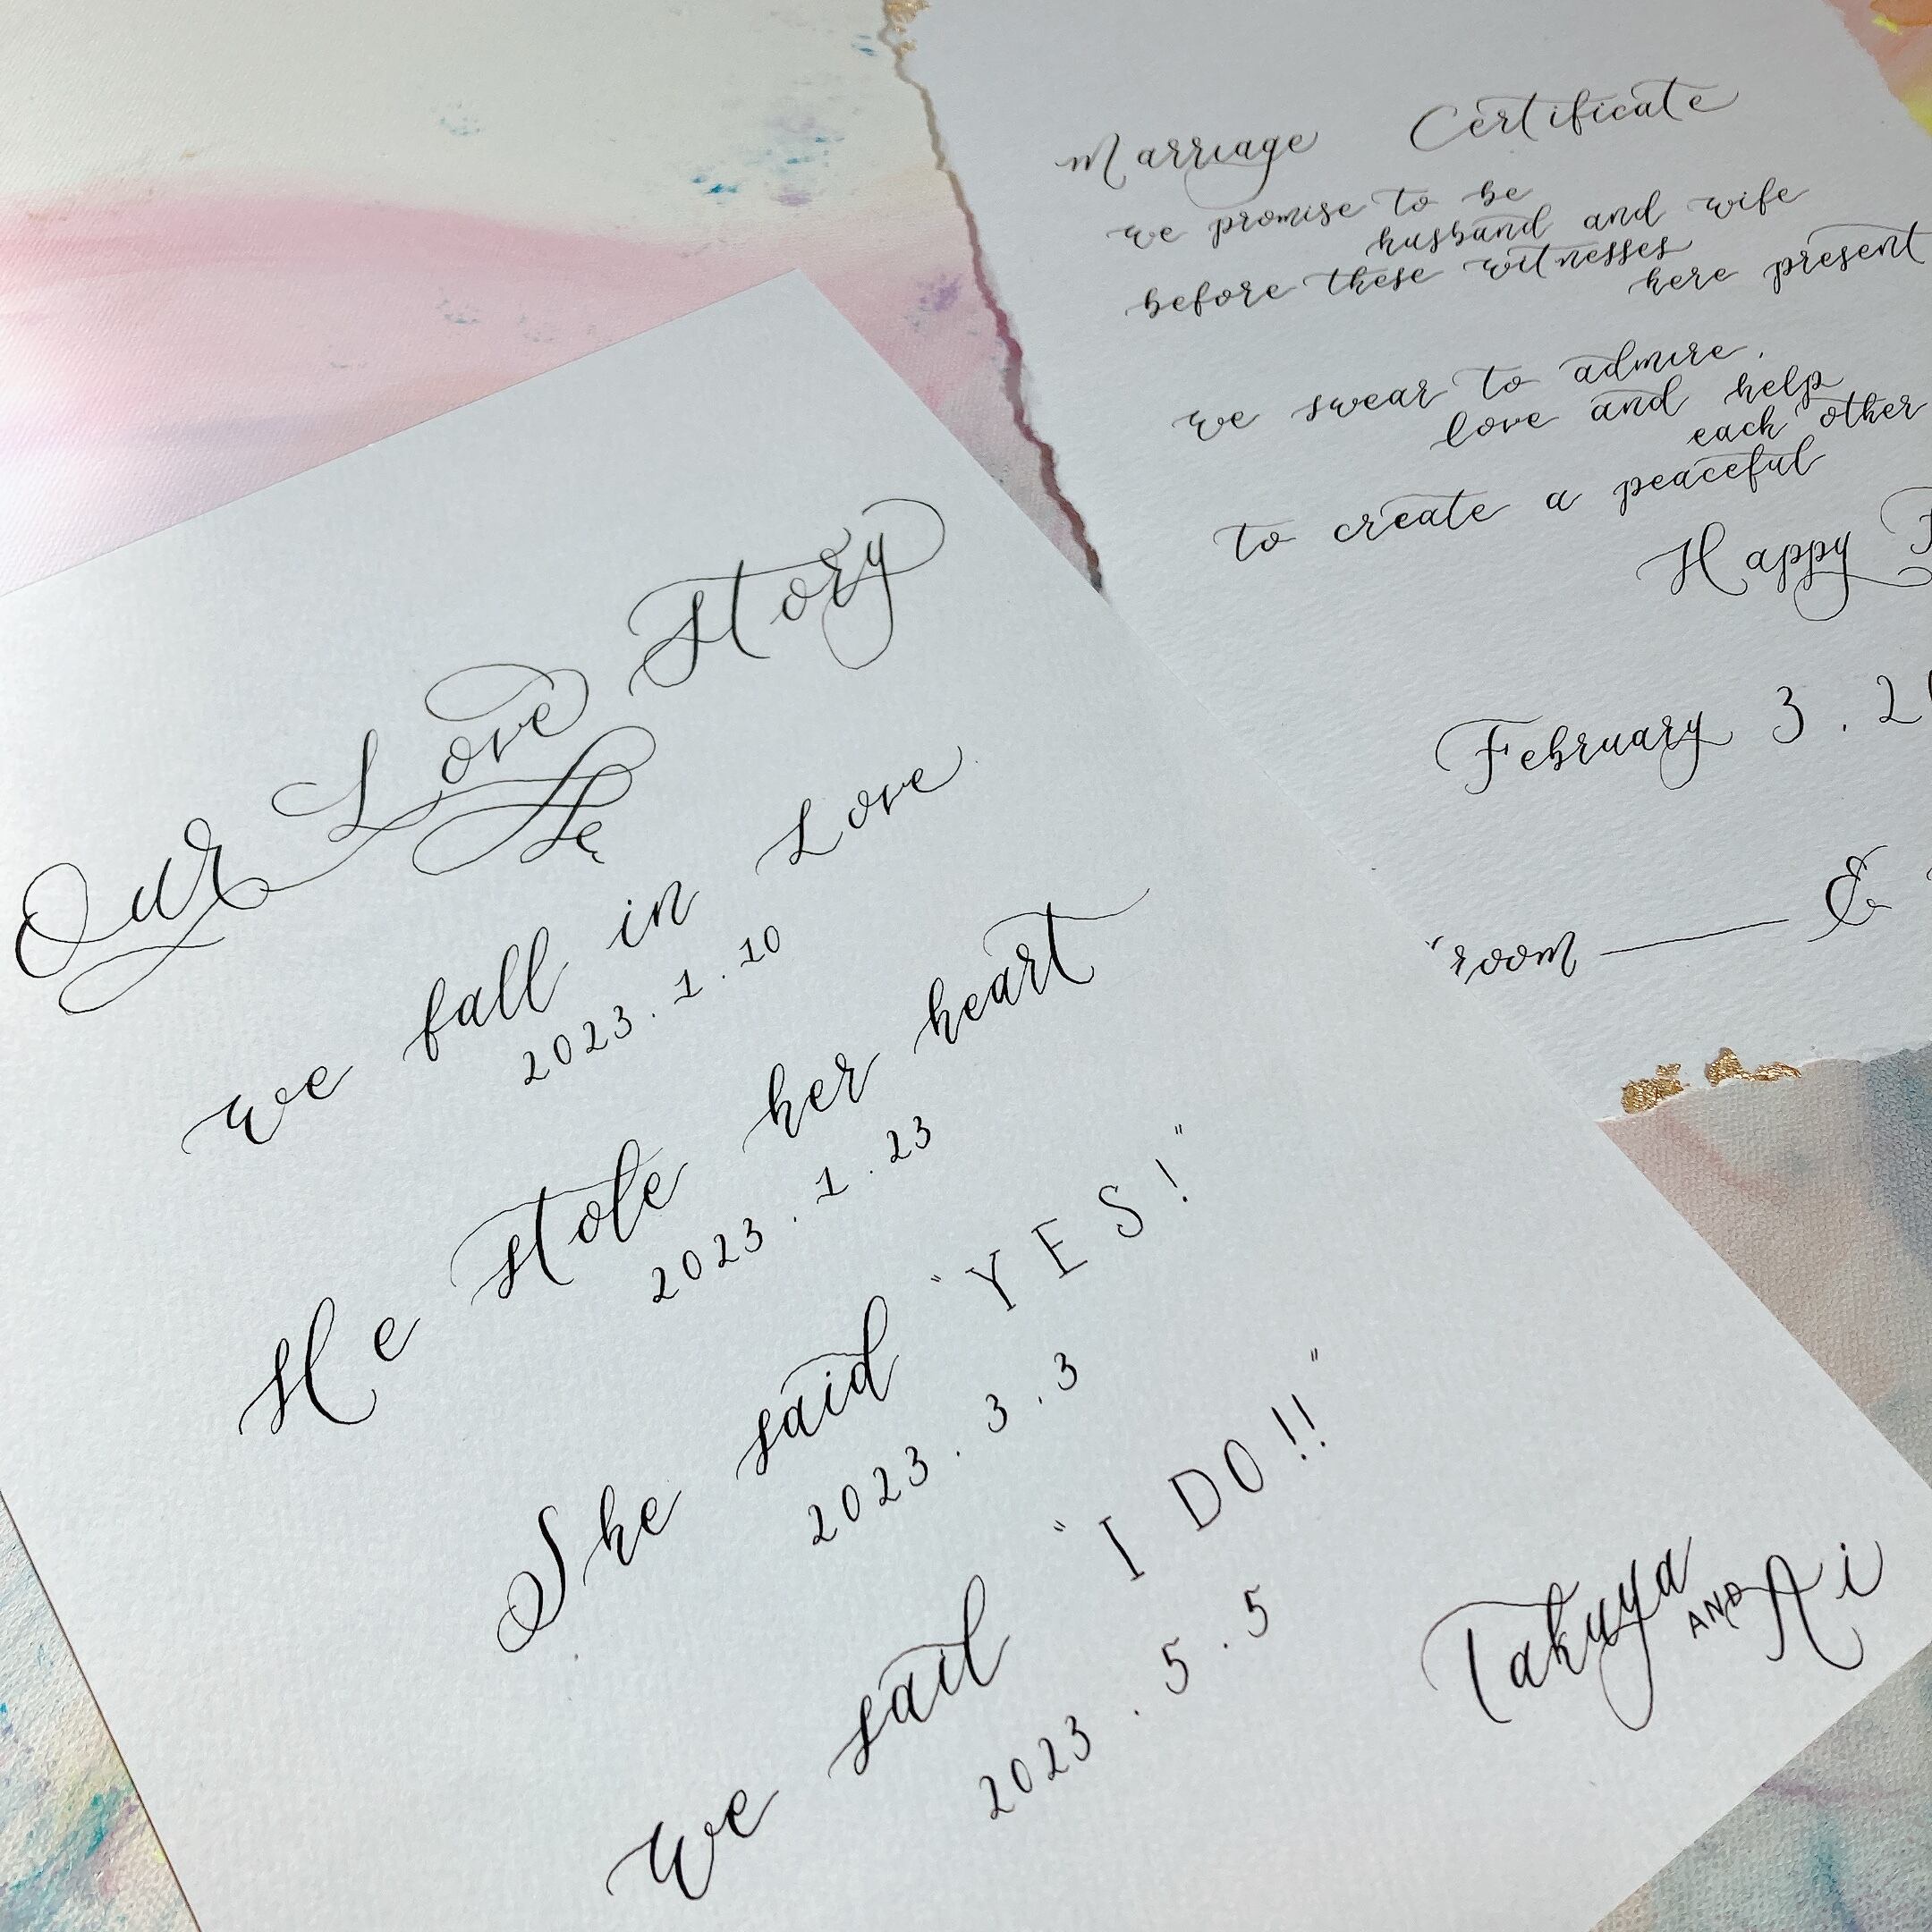 Our Love Story
we fall in Love
2023.1.10
He stole her heart
2023.1.23
She said "YES!"
2023.3.3
we said "I DO!!"
2023.5.5
Takuya AND Ai
Marriage Certificate
we promise to be
husband and wife
before these witnesses
here present
we swear to admire,
love and help
each other
to create a peaceful
Happy
February 3. 2
"room &